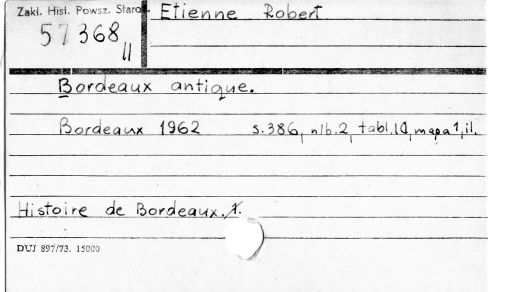 Zakł. Hist. Powsz. Staroż. Etienne Robert
57368
II
Bordeaux antique.
Bordeaux 1962 s. 386, nlb. 2, tabl. 10, mapa 1, il.
Histoire de Bordeaux. 1.
DUJ 897/73. 15000